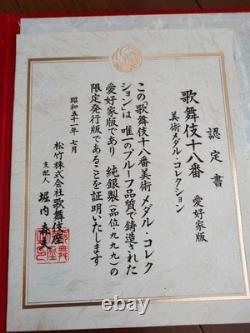 認定書
歌舞伎十八番
美術メダル・コレクション
愛好家版
この「歌舞伎十八番美術メダル・コレク
ション」は唯一のプルーフ品質で鋳造された
愛好家版であり 純銀製(品位・九九九)の
限定発行版であることを証明いたします
昭和五十一年 七月
松竹株式会社歌舞伎座
支配人 堀内 森夫